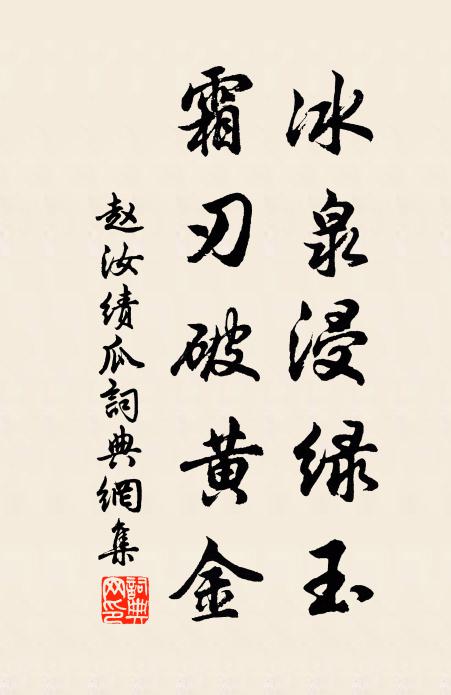 冰泉浸绿玉
霜刃破黄金
赵汝绩瓜詞典網集
詞典网印